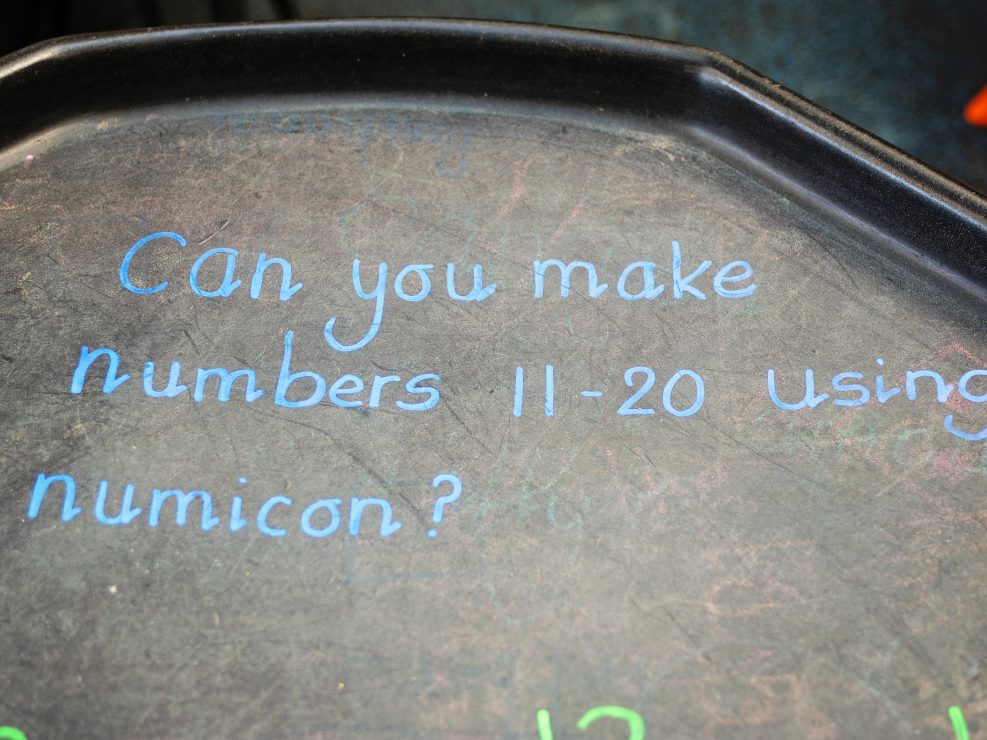 Can you make
numbers 11-20 using
numicon?